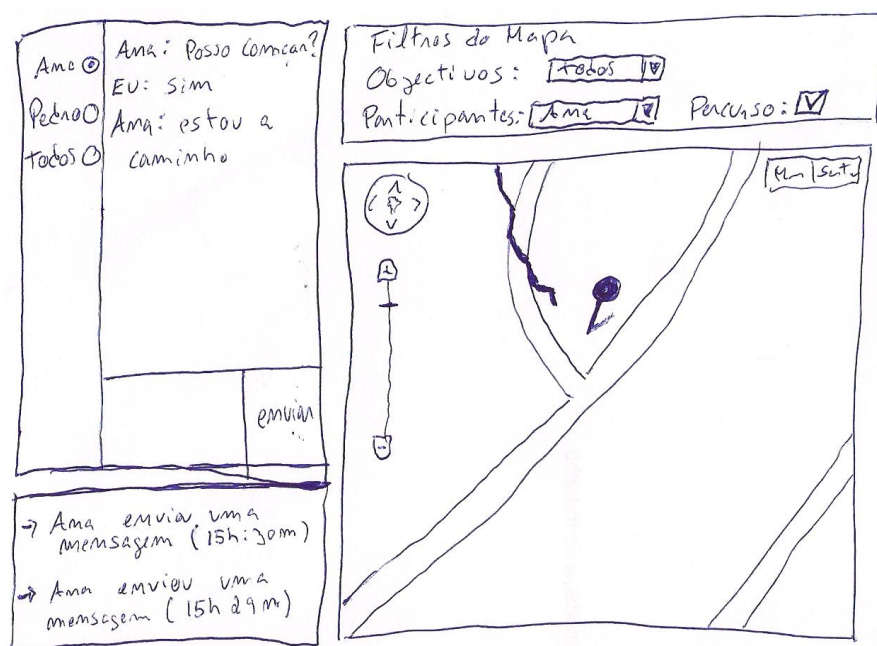 Ana
Pedro
todos
Ana: Posso começar?
Eu: sim
Ana: estou a
caminho
enviar
→ Ana enviou uma
mensagem (15h:30m)
→ Ana enviou uma
mensagem (15h29m)
Filtros do Mapa
Objectivos: todos
Participantes: Ana Percurso:
+
-